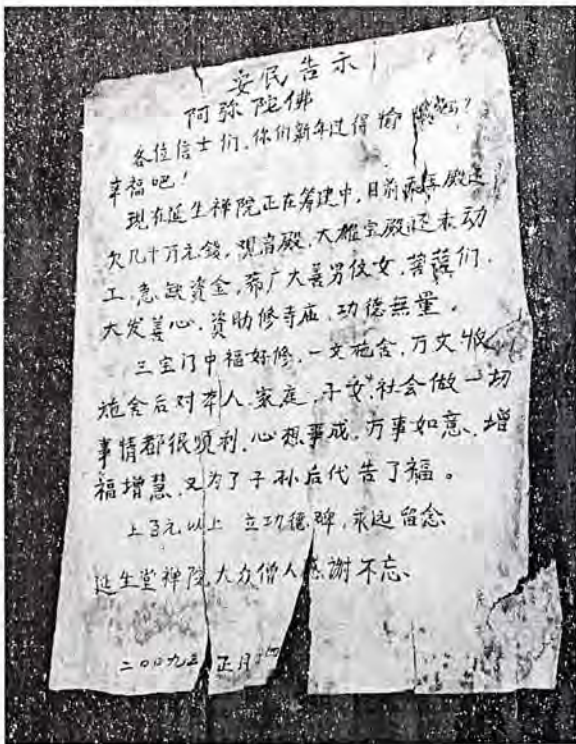 安民告示
阿弥陀佛
各位信士们,你们新年过得愉
幸福吧!
现在延生禅院正在筹建中,目前 殿还
欠几十万元钱,观音殿、大雄宝殿还未动
工,急缺资金,希广大善男信女,菩萨们,
大发善心,资助修寺庙,功德無量。
三宝门中福好修,一文施舍,万文收
施舍后对本人、家庭、子女、社会做一切
事情都很顺利,心想事成,万事如意、增
福增慧,又为了子孙后代告了福。
上百元以上 立功德碑,永远留念
延生堂禅院大众僧人感謝不忘、
二〇〇九 正月